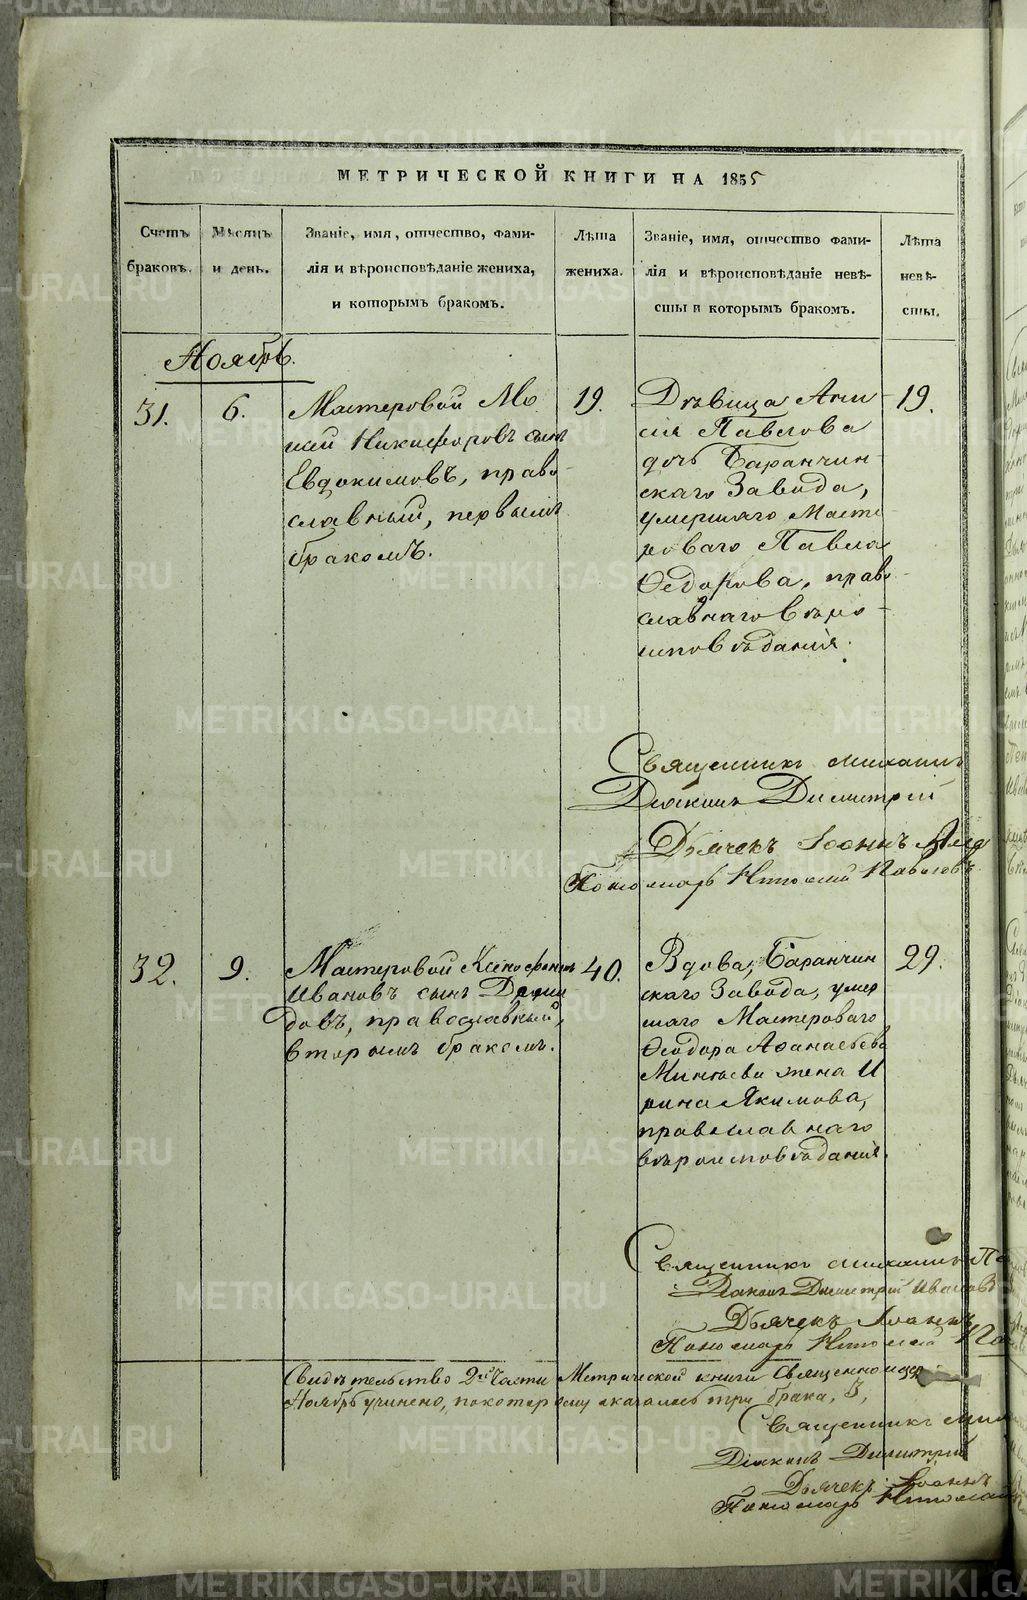 МЕТРИЧЕСКОЙ КНИГИ НА 1855
Счетъ браковъ.
Мѣсяцъ и день.
Званіе, имя, отчество, фами-
лія и вѣроисповѣданіе жениха,
и которымъ бракомъ.
Лѣта
жениха.
Званіе, имя, отчество фами-
лія и вѣроисповѣданіе невѣ-
сты и которымъ бракомъ.
Лѣта
невѣ-
сты.
Ноябрь.
31.
6.
Мастеровой Мо
кій Никифоровъ сынъ
Евдокимовъ, право-
славный, первымъ
бракомъ.
19.
Дѣвица Ани-
сія Павлова
дочь Баранчин-
скаго Завода,
умершаго Масте-
роваго Павла
Ѳедорова, право-
славнаго вѣро-
исповѣданія.
19.
Священникъ Михаилъ
Діаконъ Димитрій
Дьячекъ Іоаннъ
Пономарь Николай Павловъ
32.
9.
Мастеровой Ксенофонтъ
Ивановъ сынъ Деми
довъ, православный,
вторымъ бракомъ.
40.
Вдова, Баранчин
скаго Завода, умер
шаго Мастероваго
Ѳеодора Аѳанасьева
жена И
рина Якимова,
православнаго
вѣроисповѣданія.
29.
Священникъ Михаилъ
Діаконъ Димитрій Ивановъ
Дьячекъ Іоаннъ
Пономарь Николай
Свидѣтельство 2й Части Метрической книги Священноцер
Ноябрь учинено, по которому оказалось три брака, 3,
Священникъ
Діаконъ Димитрій
Дьячекъ Іоаннъ
Пономарь Николай
METRIKI.GASO-URAL.RU